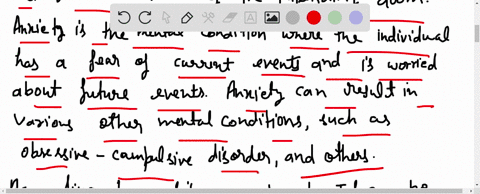 Anxiety is the mental condition where the individual
has a fear of current events and is worried
about future events. Anxiety can result in
various other mental conditions, such as
obsessive - compulsive disorder, and others.